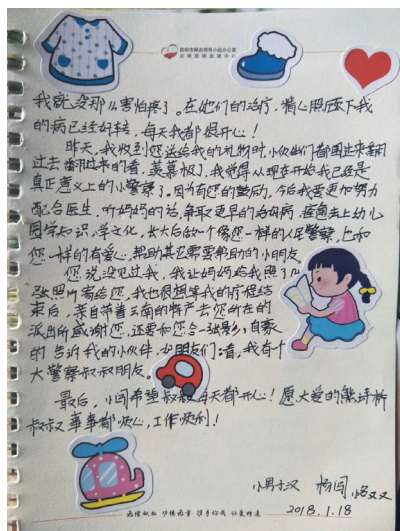 昆明市献血领导小组办公室
云南昆明血液中心
我就没那么害怕疼了。在他们的治疗，精心照顾下我
的病已经好转，每天我都很开心！
昨天，我收到您送给我的礼物时，小伙伴们都围过来翻
过去翻过来的看，羡慕极了，我觉得从现在开始我已经是
真正意义上的小警察了。因为有您的鼓励，今后我要更加努力
配合医生，听妈妈的话，争取更早的治好病，回去上幼儿
园学知识，学文化，长大后做一个像您一样的人民警察，
您一样的有爱心，帮助其它需要帮助的小朋友。
您说没见过我，我让妈妈给我照了几
张照片寄给您，我也很想等我的疗程结
束后，亲自带着云南的特产去您所在的
派出所感谢您，还要和您合一张影，自豪
的告诉我的小伙伴，好朋友们：看，我有个
大警察叔叔朋友。
最后，小闫希望叔叔每天都开心！愿大爱的
叔叔事事都顺心，工作顺利！
小男子汉 杨闫
2018.1.18
无偿献血